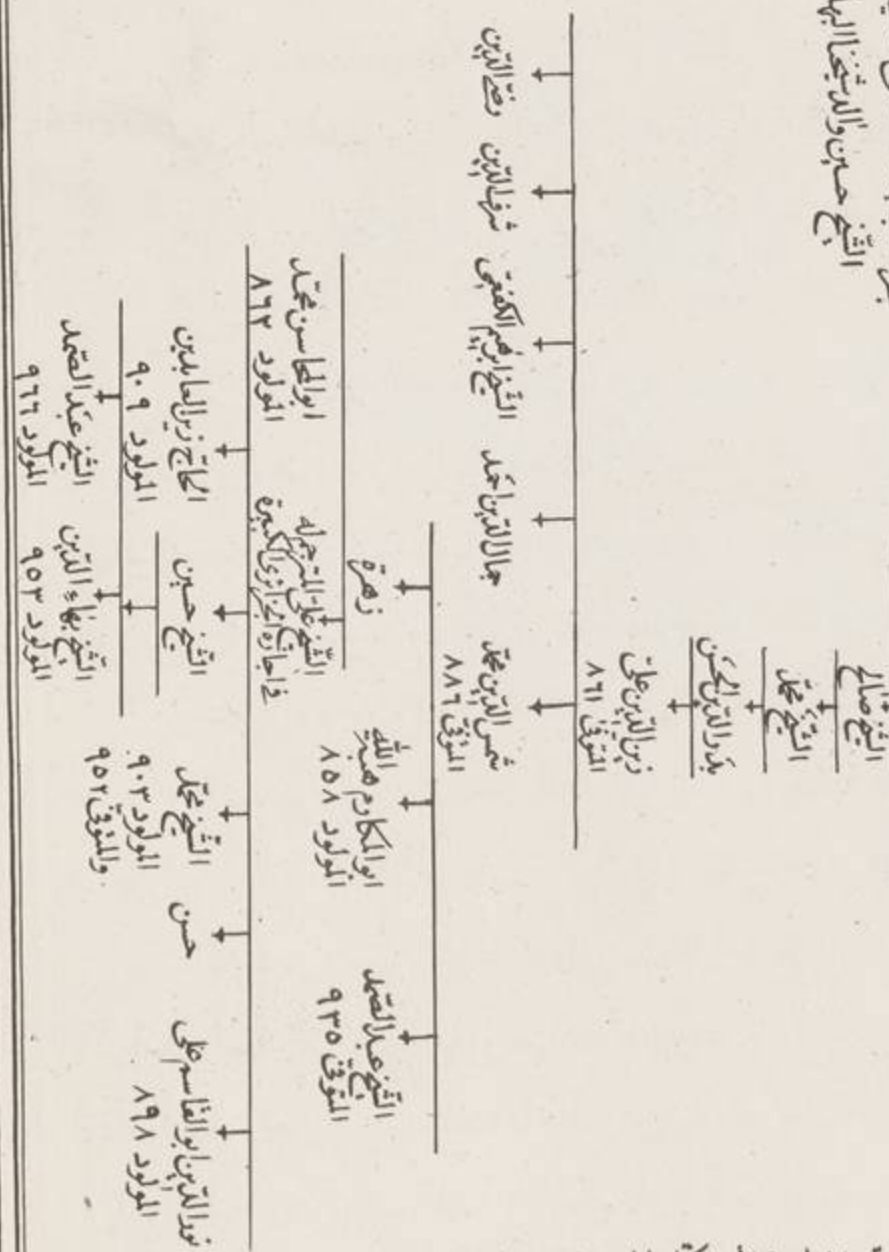 الشيخ حسين والد شيخنا البها
الشيخ صالح
الشيخ محمد
بدر الدين الحسن
زين الدين علي
المتوفى ٨٦١
رضى الدين
شرف الدين
الشيخ ابرهيم الكفعمي
جمال الدين احمد
شمس الدين محمد
المتوفى ٨٨٦
زهرة
ابو المكارم هبة الله
المولود ٨٥٨
الشيخ عبد الصمد
المتوفى ٩٣٥
ابو المحاسن محمد
المولود ٨٦٢
الشيخ علي المترجم له
في اجازة الجزائري الكبيرة
الحاج زين العابدين
المولود ٩٠٩
الشيخ حسين
الشيخ محمد
المولود ٩٠٣
والمتوفى ٩٥٢
حسن
نور الدين ابو القاسم علي
المولود ٨٩٨
الشيخ عبد الصمد
المولود ٩٦٦
الشيخ بهاء الدين
المولود ٩٥٣